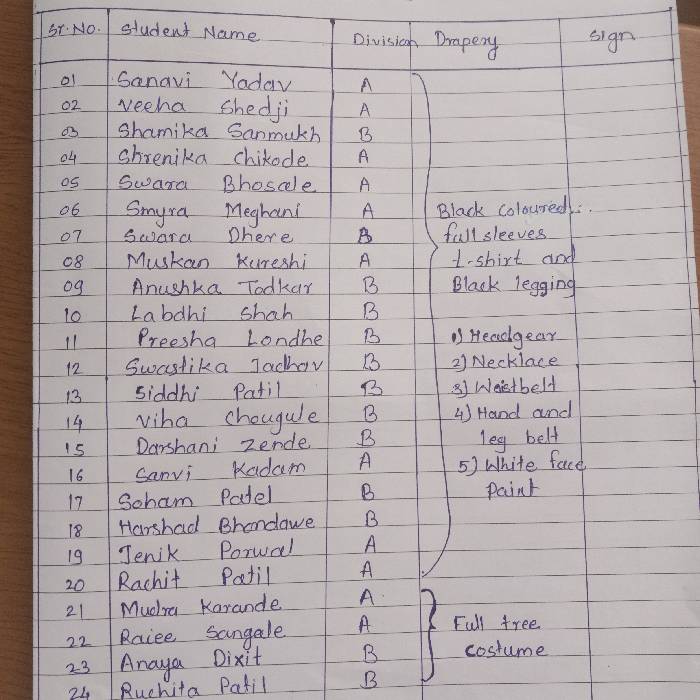 Sr.No. Student Name Division Drapery Sign
01 Sanavi Yadav A
02 Veeha Shedji A
03 Shamika Sanmukh B
04 Shrenika Chikode A
05 Swara Bhosale A
06 Smyra Meghani A Black coloured
07 Swara Dhere B full sleeves
08 Muskan Kureshi A t-shirt and
09 Anushka Todkar B Black legging
10 Labdhi Shah B
11 Preesha Londhe B 1) Headgear
12 Swastika Jadhav B 2) Necklace
13 Siddhi Patil B 3) Waistbelt
14 Viha Chougule B 4) Hand and
15 Darshani Zende B leg belt
16 Sanvi Kadam A 5) White face
17 Soham Patel B Paint
18 Harshad Bhandawe B
19 Jenik Porwal A
20 Rachit Patil A
21 Mudra Karande A
22 Raiee Sangale A Full tree
23 Anaya Dixit B costume
24 Ruchita Patil B